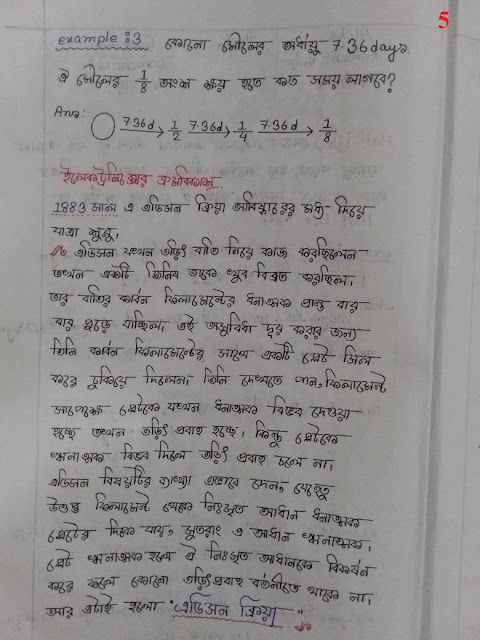 5
example: 3 কোনো মৌলের অর্ধায়ু 7.36 days.
ঐ মৌলের 1/8 অংশ ক্ষয় হতে কত সময় লাগবে?
Ans: ◯ 7.36d → 1/2 7.36d → 1/4 7.36d → 1/8
ইলেকট্রনিক্সের ক্রমবিকাশ
1883 সাল এ এডিসন ক্রিয়া আবিষ্কারের মধ্য দিয়ে
যাত্রা শুরু।
এডিসন যখন তড়িৎ বাতি নিয়ে কাজ করছিলেন
তখন একটি জিনিস তাকে খুব বিব্রত করছিল।
তার বাতির কার্বন ফিলামেন্টের ধনাত্মক প্রান্ত বার
বার পুড়ে যাচ্ছিল। এই অসুবিধা দূর করার জন্য
তিনি কার্বন ফিলামেন্টের সাথে একটি প্লেট সিল
করে ঢুকিয়ে দিলেন। তিনি দেখতে পান, ফিলামেন্ট
সাপেক্ষে প্লেটকে যখন ধনাত্মক বিভব দেওয়া
হচ্ছে তখন তড়িৎ প্রবাহ হচ্ছে। কিন্তু প্লেটকে
ঋনাত্মক বিভব দিলে তড়িৎ প্রবাহ চলে না।
এডিসন বিষয়টির ব্যাখ্যা এভাবে দেন, যেহেতু
উত্তপ্ত ফিলামেন্ট থেকে নিঃসৃত আধান ধনাত্মক
প্লেটের দিকে যায়, সুতরাং এ আধান ঋনাত্মক।
প্লেট ঋনাত্মক হলে ঐ নিঃসৃত আধানকে বিকর্ষন
করে ফলে কোনো তড়িৎপ্রবাহ বর্তনীতে থাকে না।
আর এটাই হলো "এডিসন ক্রিয়া"